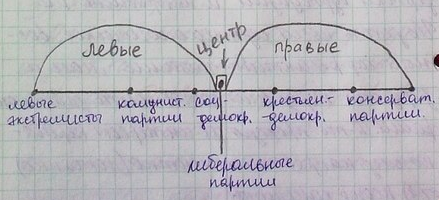 левые
центр
правые
левые
экстремисты
комунист.
партии
соц-
демокр.
крестьян.-
-демокр.
консерват.
партии.
либеральные
партии